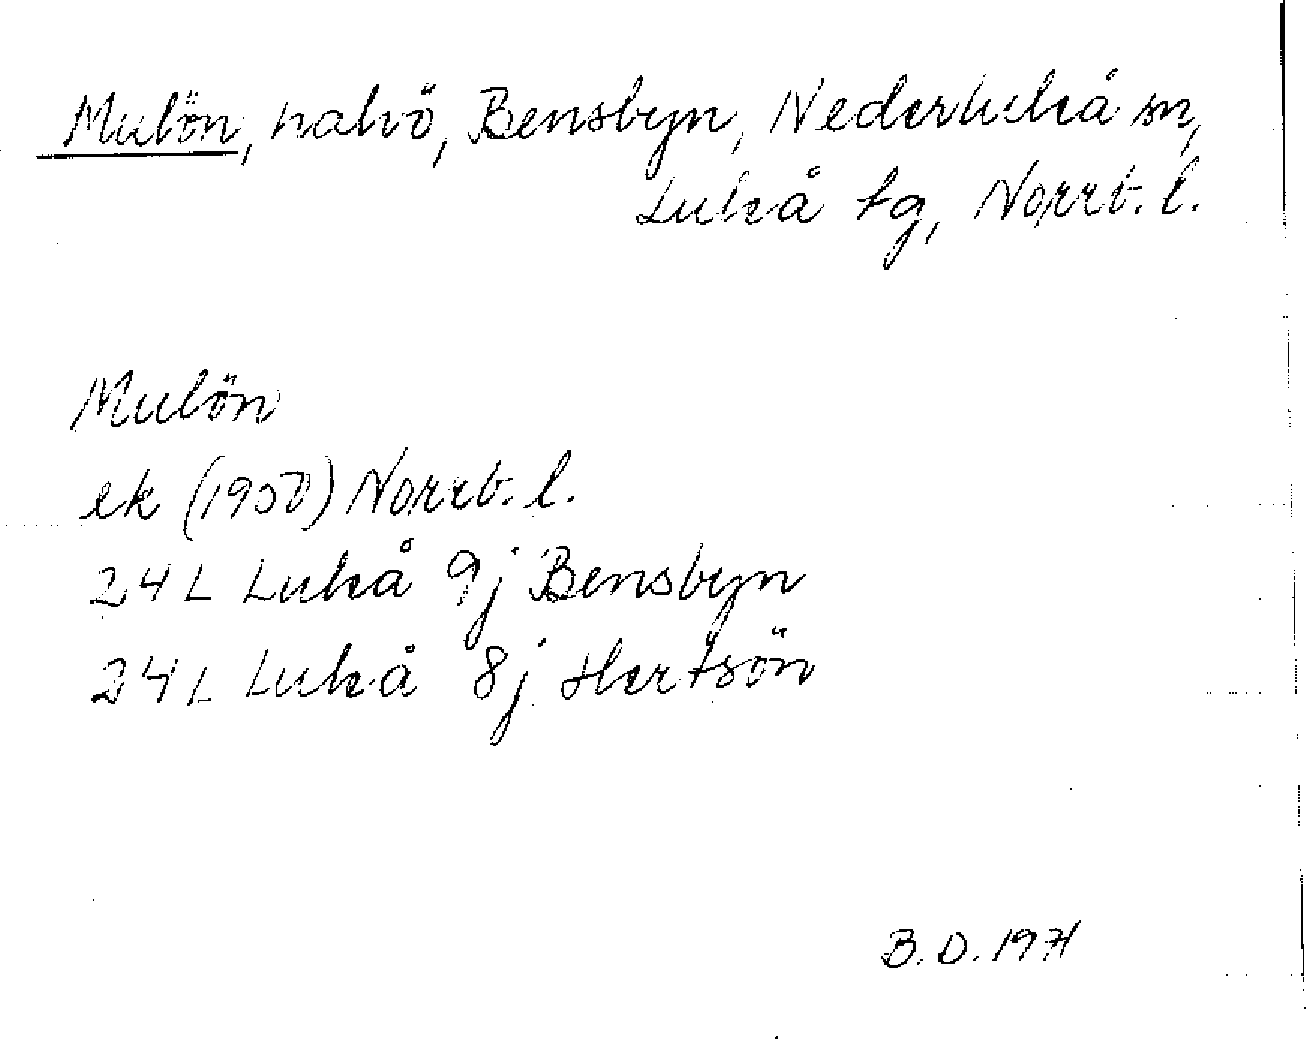 Mulön, halvö, Bensbyn, Nederluleå sn,
Luleå tg, Norrb. l.
Mulön
ek (1950) Norrb. l.
24 L Luleå 9j Bensbyn
24 L Luleå 8j Hertsön
B. D. 1971